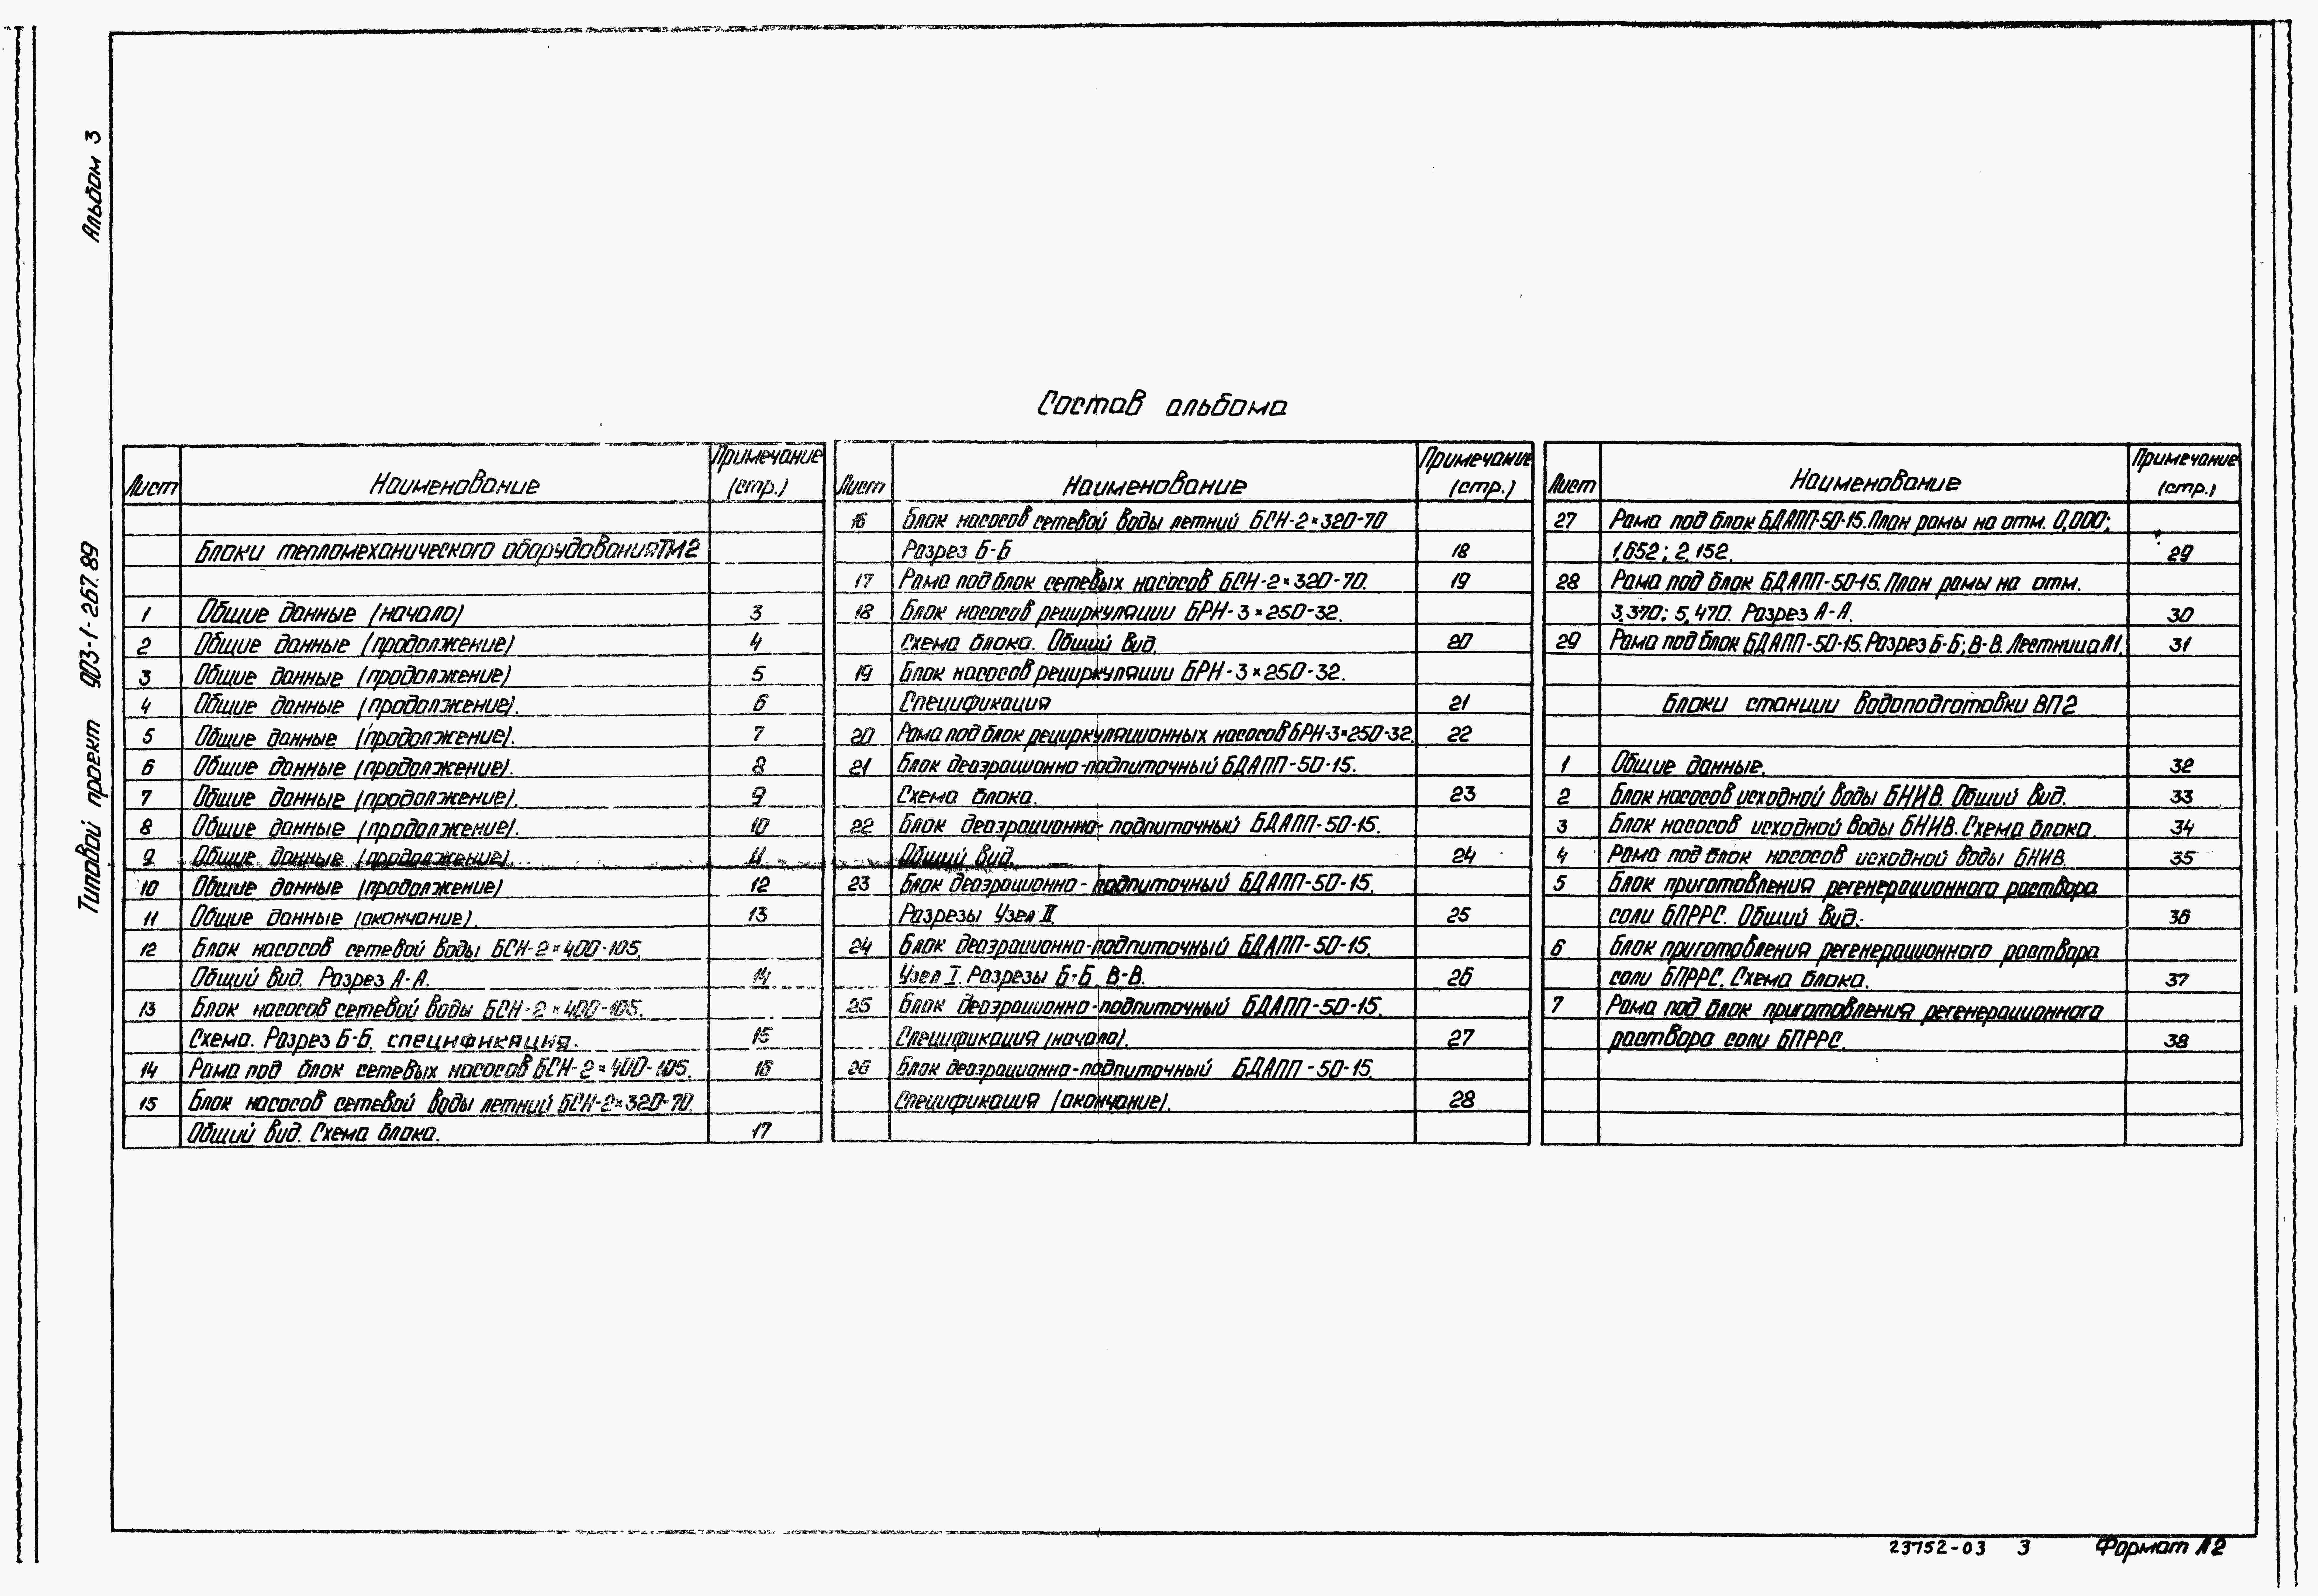 Альбом 3
Типовой проект 903-1-267.89
Состав альбома
Лист Наименование Примечание (стр.)
Блоки тепломеханического оборудования ТМ2
1 Общие данные (начало) 3
2 Общие данные (продолжение) 4
3 Общие данные (продолжение) 5
4 Общие данные (продолжение). 6
5 Общие данные (продолжение). 7
6 Общие данные (продолжение). 8
7 Общие данные (продолжение). 9
8 Общие данные (продолжение). 10
9 Общие данные (продолжение). 11
10 Общие данные (продолжение) 12
11 Общие данные (окончание). 13
12 Блок насосов сетевой воды БСН-2×400-105.
Общий вид. Разрез А-А. 14
13 Блок насосов сетевой воды БСН-2×400-105.
Схема. Разрез Б-Б. спецификация. 15
14 Рама под блок сетевых насосов БСН-2×400-105. 16
15 Блок насосов сетевой воды летний БСН-2×320-70.
Общий вид. Схема блока. 17
Лист Наименование Примечание (стр.)
16 Блок насосов сетевой воды летний БСН-2×320-70
Разрез Б-Б 18
17 Рама под блок сетевых насосов БСН-2×320-70. 19
18 Блок насосов рециркуляции БРН-3×250-32.
Схема блока. Общий вид. 20
19 Блок насосов рециркуляции БРН-3×250-32.
Спецификация 21
20 Рама под блок рециркуляционных насосов БРН-3×250-32. 22
21 Блок деаэрационно-подпиточный БДАПП-50-15.
Схема блока. 23
22 Блок деаэрационно-подпиточный БДАПП-50-15.
Общий вид. 24
23 Блок деаэрационно-подпиточный БДАПП-50-15.
Разрезы Узел II. 25
24 Блок деаэрационно-подпиточный БДАПП-50-15.
Узел I. Разрезы Б-Б, В-В. 26
25 Блок деаэрационно-подпиточный БДАПП-50-15.
Спецификация (начало). 27
26 Блок деаэрационно-подпиточный БДАПП-50-15.
Спецификация (окончание). 28
Лист Наименование Примечание (стр.)
27 Рама под блок БДАПП-50-15. План рамы на отм. 0,000;
1,652; 2,152. 29
28 Рама под блок БДАПП-50-15. План рамы на отм.
3,370; 5,470. Разрез А-А. 30
29 Рама под блок БДАПП-50-15. Разрез Б-Б; В-В. Лестница Л1. 31
Блоки станции водоподготовки ВП2
1 Общие данные. 32
2 Блок насосов исходной воды БНИВ. Общий вид. 33
3 Блок насосов исходной воды БНИВ. Схема блока. 34
4 Рама под блок насосов исходной воды БНИВ. 35
5 Блок приготовления регенерационного раствора
соли БПРРС. Общий вид. 36
6 Блок приготовления регенерационного раствора
соли БПРРС. Схема блока. 37
7 Рама под блок приготовления регенерационного
раствора соли БПРРС. 38
23752-03 3 Формат А2